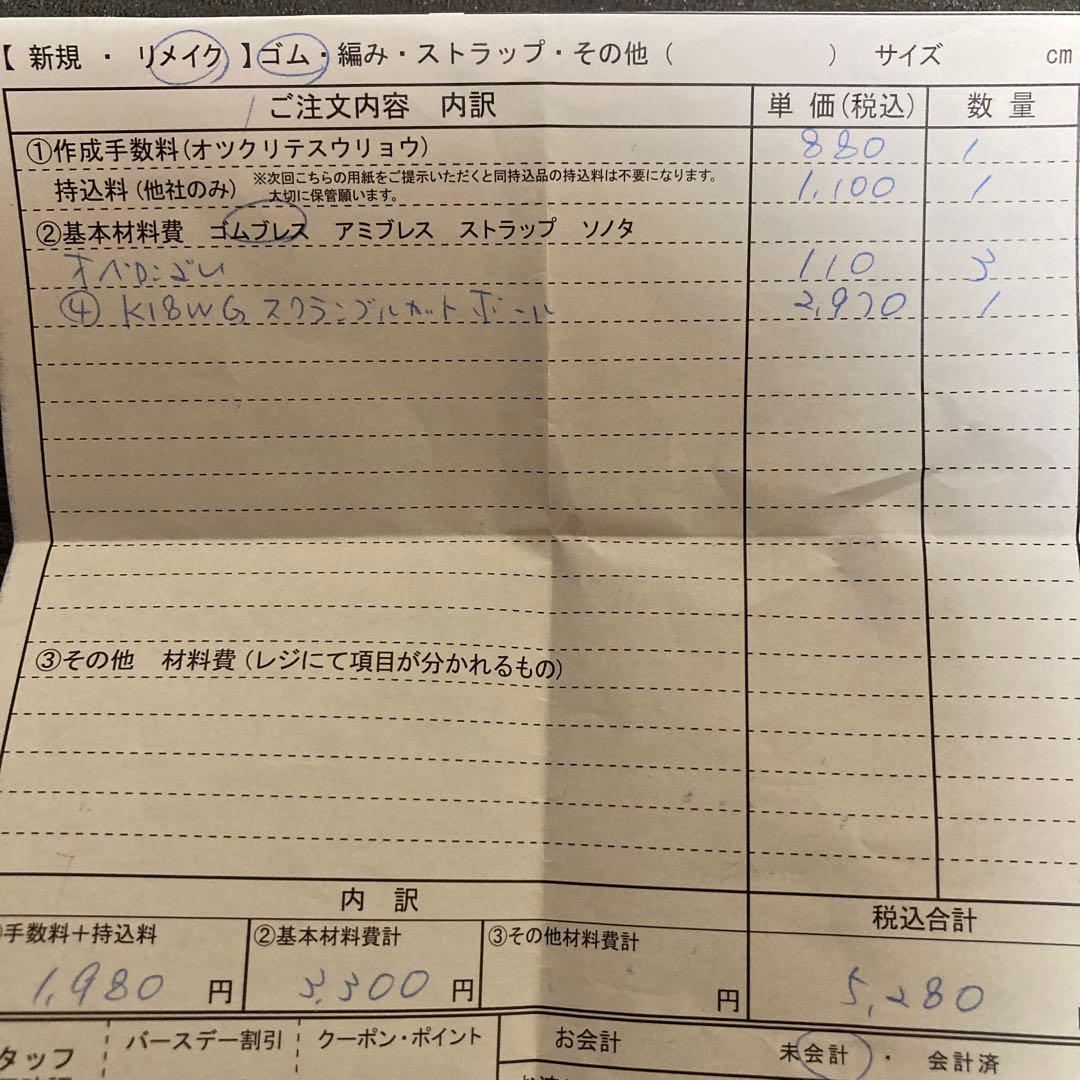 【 新規 ・ リメイク 】ゴム・編み・ストラップ・その他（ ） サイズ cm
ご注文内容 内訳 単価(税込) 数量
①作成手数料(オツクリテスウリョウ) 880 1
持込料(他社のみ) ※次回こちらの用紙をご提示いただくと同持込品の持込料は不要になります。 1,100 1
大切に保管願います。
②基本材料費 ゴムブレス アミブレス ストラップ ソノタ
オペロンゴム 110 3
④ K18WG スクランブルカットボール 2,970 1
③その他 材料費(レジにて項目が分かれるもの)
内 訳 税込合計
手数料＋持込料 ②基本材料費計 ③その他材料費計
1,980 円 3,300 円 円 5,280
タッフ バースデー割引 クーポン・ポイント お会計 未会計 ・ 会計済